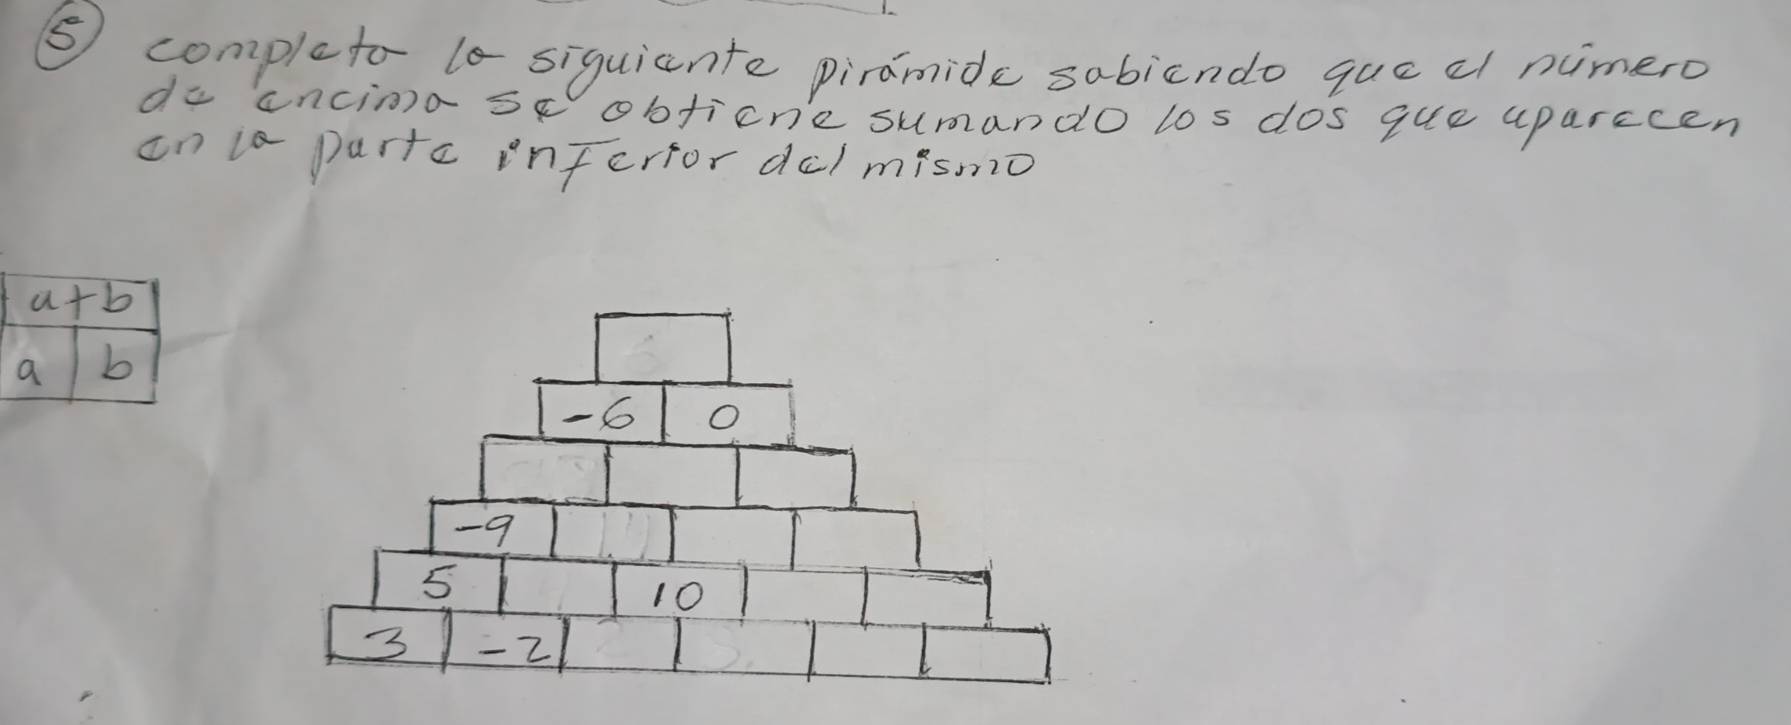 5 completa la siguiente pirámide sabiendo que el número
de encima se obtiene sumando los dos que aparecen
en la parte inferior del mismo
a+b
a b
-6 0
-9
5 10
3 -2